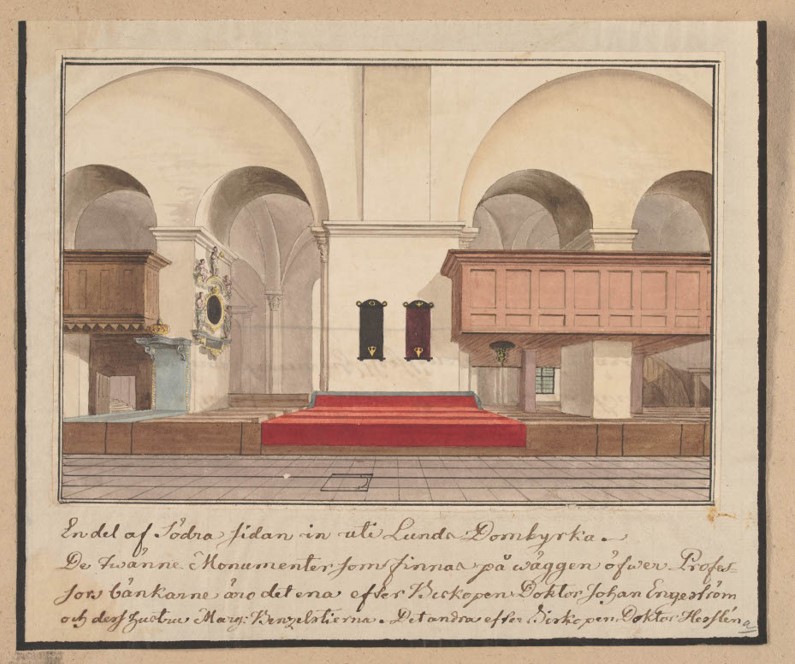 En del af Södra sidan in uti Lunds Domkyrka.
De twänne Monumenter som finnas på wäggen öfwer Profes-
sors bänkarne äro det ena efter Biskopen Doktor Johan Engeström
och dess hustru Marg: Benzelstierna. Det andra efter Biskopen Doktor Hesslén